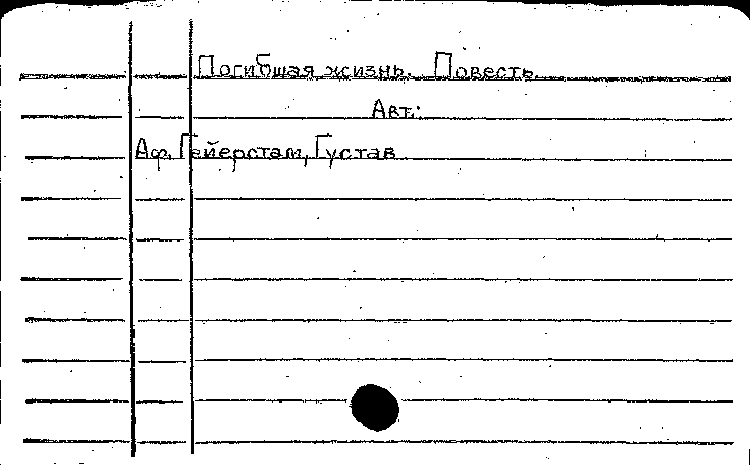 Погибшая жизнь. Повесть.
Авт.:
Аф. Гейерстам, Густав